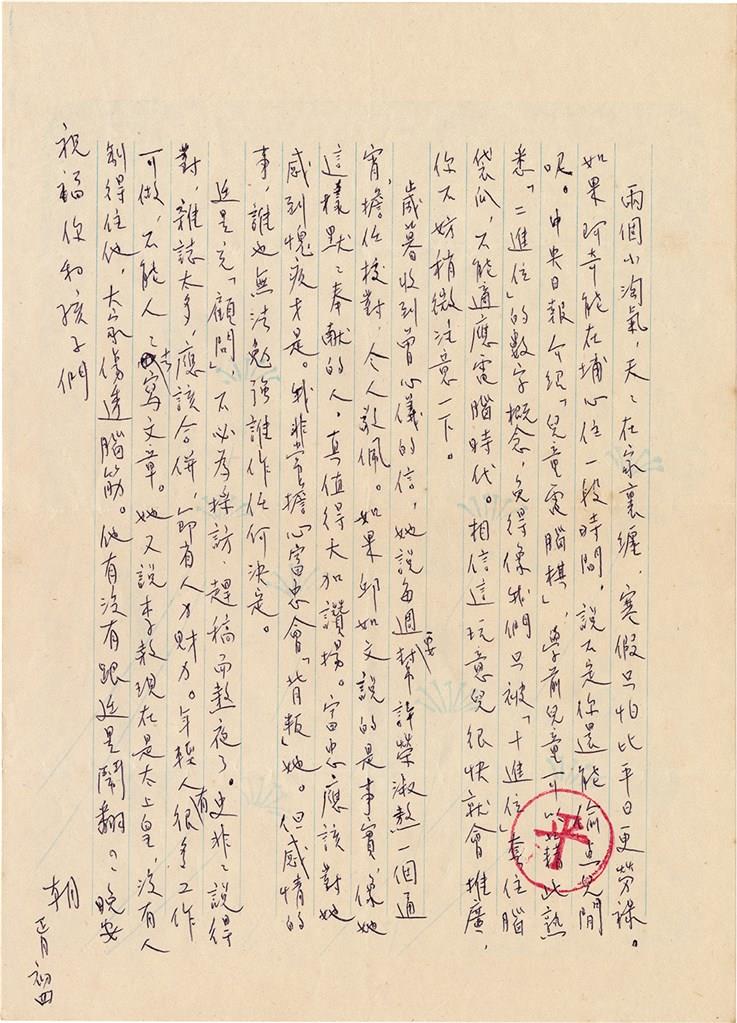 兩個小淘氣，天天在家裏纏，寒假只怕比平日更勞碌。
如果阿奇能在埔心住一段時間，說不定你還能偷點兒閒
呢。中央日報介紹「兒童電腦棋」，學前兒童可以藉此熟
悉「二進位」的數字概念，免得像我們只被「十進位」套住腦
袋瓜，不能適應電腦時代。相信這玩意兒很快就會推廣，
你不妨稍微注意一下。
歲暮收到曾心儀的信，她說每週要幫許榮淑熬一個通
宵，擔任校對，令人敬佩。如果邱如文說的是事實，像她
這樣默默奉献的人，真值得大加讚揚。富忠應該對她
感到愧疚才是。我非常擔心富忠會「背叛」她。但感情的
事，誰也無法勉強誰作任何決定。
近是充「顧問」，不必為採訪、趕稿而熬夜了。史非非說得
對，雜誌太多，應該合併，節省人力財力。年輕人有很多工作
可做，不能人人去寫文章。她又說李敖現在是太上皇，沒有人
制得住他，大家傷透腦筋。他有沒有跟近是鬧翻？晚安
祝福你和孩子們
朝
正月初四